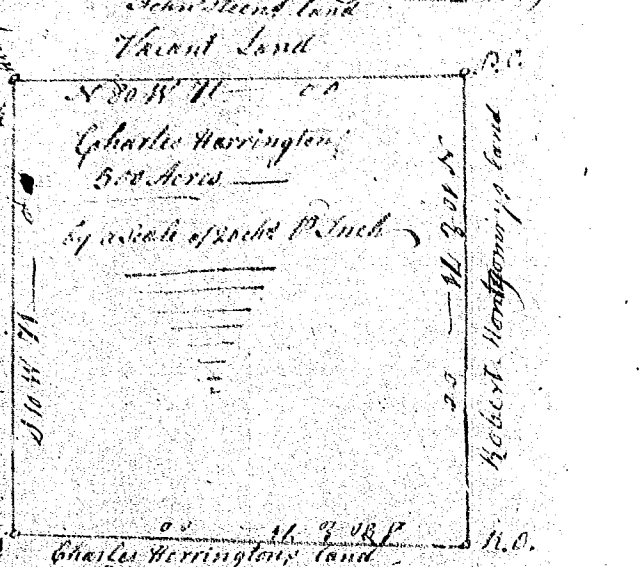 John Steens land
Vacant Land
B.O.
N 80 W 71
Charles Harrington
500 Acres
by a Scale of 20 chs Pr Inch
N 10 E 71
Robert Montgomerys land
S 10 W 71
S 80 E 71
R.O.
Charles Herringtons land